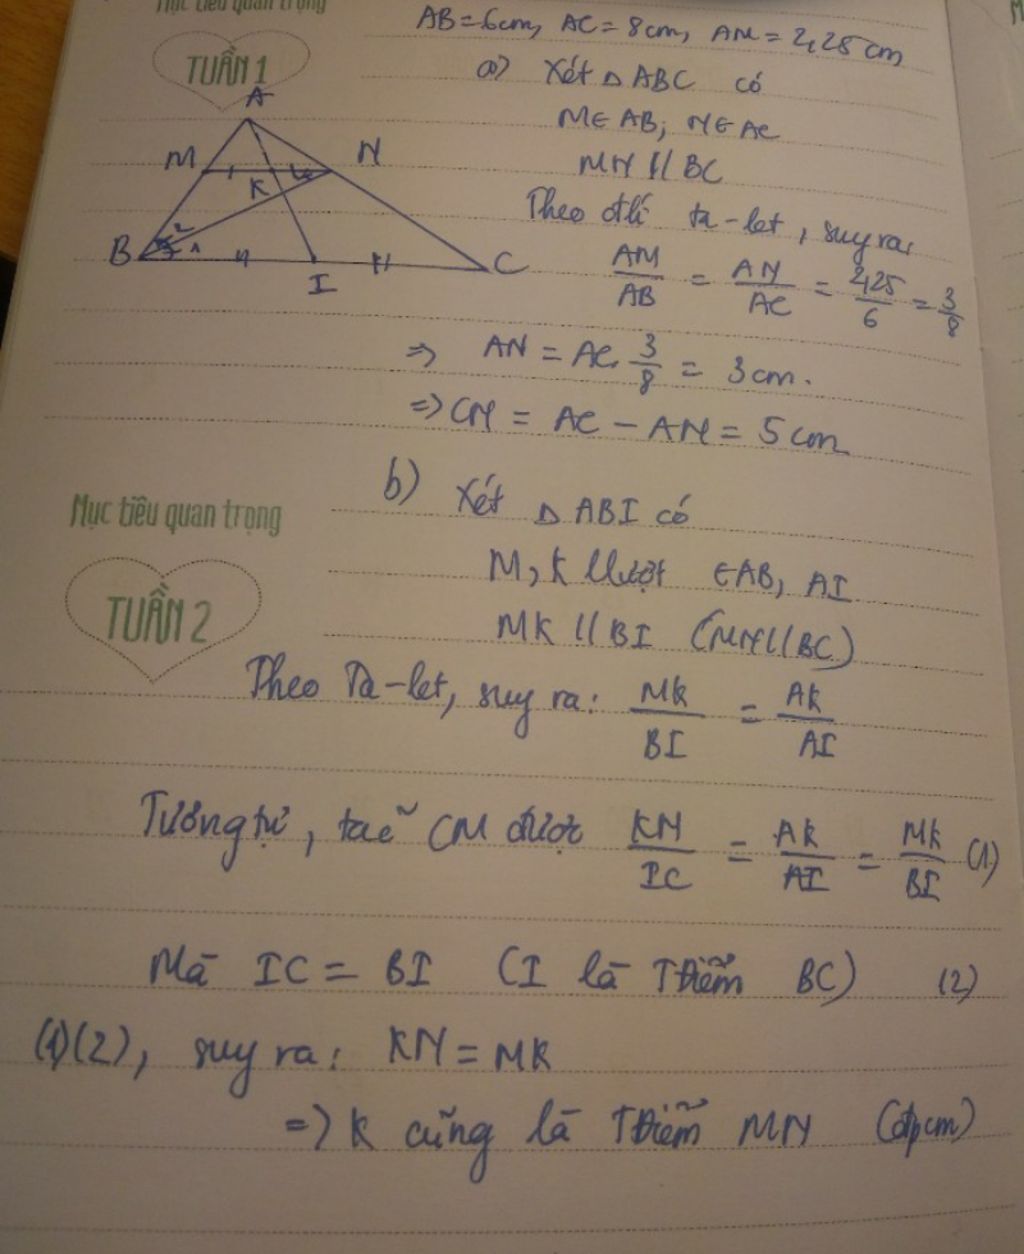 Mục tiêu quan trọng
TUẦN 1
AB = 6cm, AC = 8cm, AM = 2,25cm
a) Xét △ ABC có
M∈ AB; N∈ AC
MN // BC
Theo đlí ta-let, suy ra:
AM/AB = AN/AC = 2,25/6 = 3/8
A
M
N
K
B
2
1
I
C
⇒ AN = AC. 3/8 = 3cm.
⇒ CN = AC - AN = 5cm
b) Xét △ ABI có
Mục tiêu quan trọng
TUẦN 2
M, K llượt ∈AB, AI
MK // BI (MN//BC)
Theo Ta-let, suy ra: MK/BI = AK/AI
Tương tự, ta CM được KN/IC = AK/AI = MK/BI (1)
Mà IC = BI (I là Tđiểm BC) (2)
(1)(2), suy ra: KN = MK
=> K cũng là Tđiểm MN (đpcm)